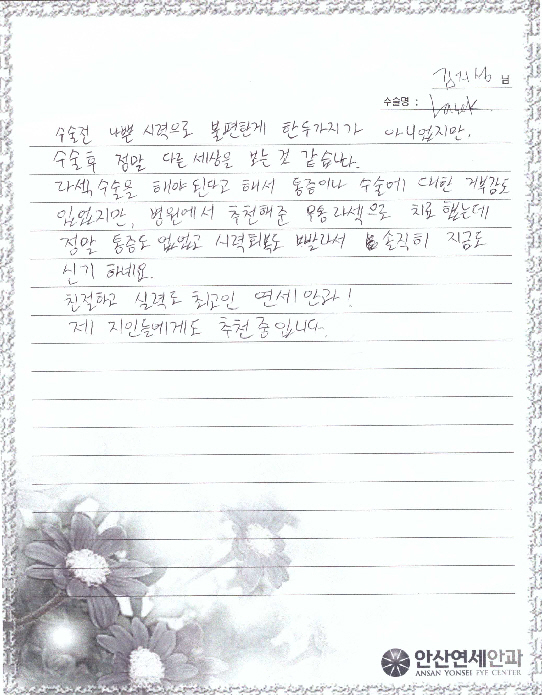 김지성 님
수술명 : Lasek
수술전 나쁜 시력으로 불편한게 한두가지가 아니었지만,
수술후 정말 다른 세상을 보는 것 같습니다.
라섹수술을 해야 된다고 해서 통증이나 수술에 대한 거부감도
있었지만, 병원에서 추천해준 무통라섹으로 치료 했는데
정말 통증도 없었고 시력회복도 빨라서 솔직히 지금도
신기 하네요.
친절하고 실력도 최고인 연세안과!
제 지인들에게도 추천중입니다.
안산연세안과
ANSAN YONSEI EYE CENTER